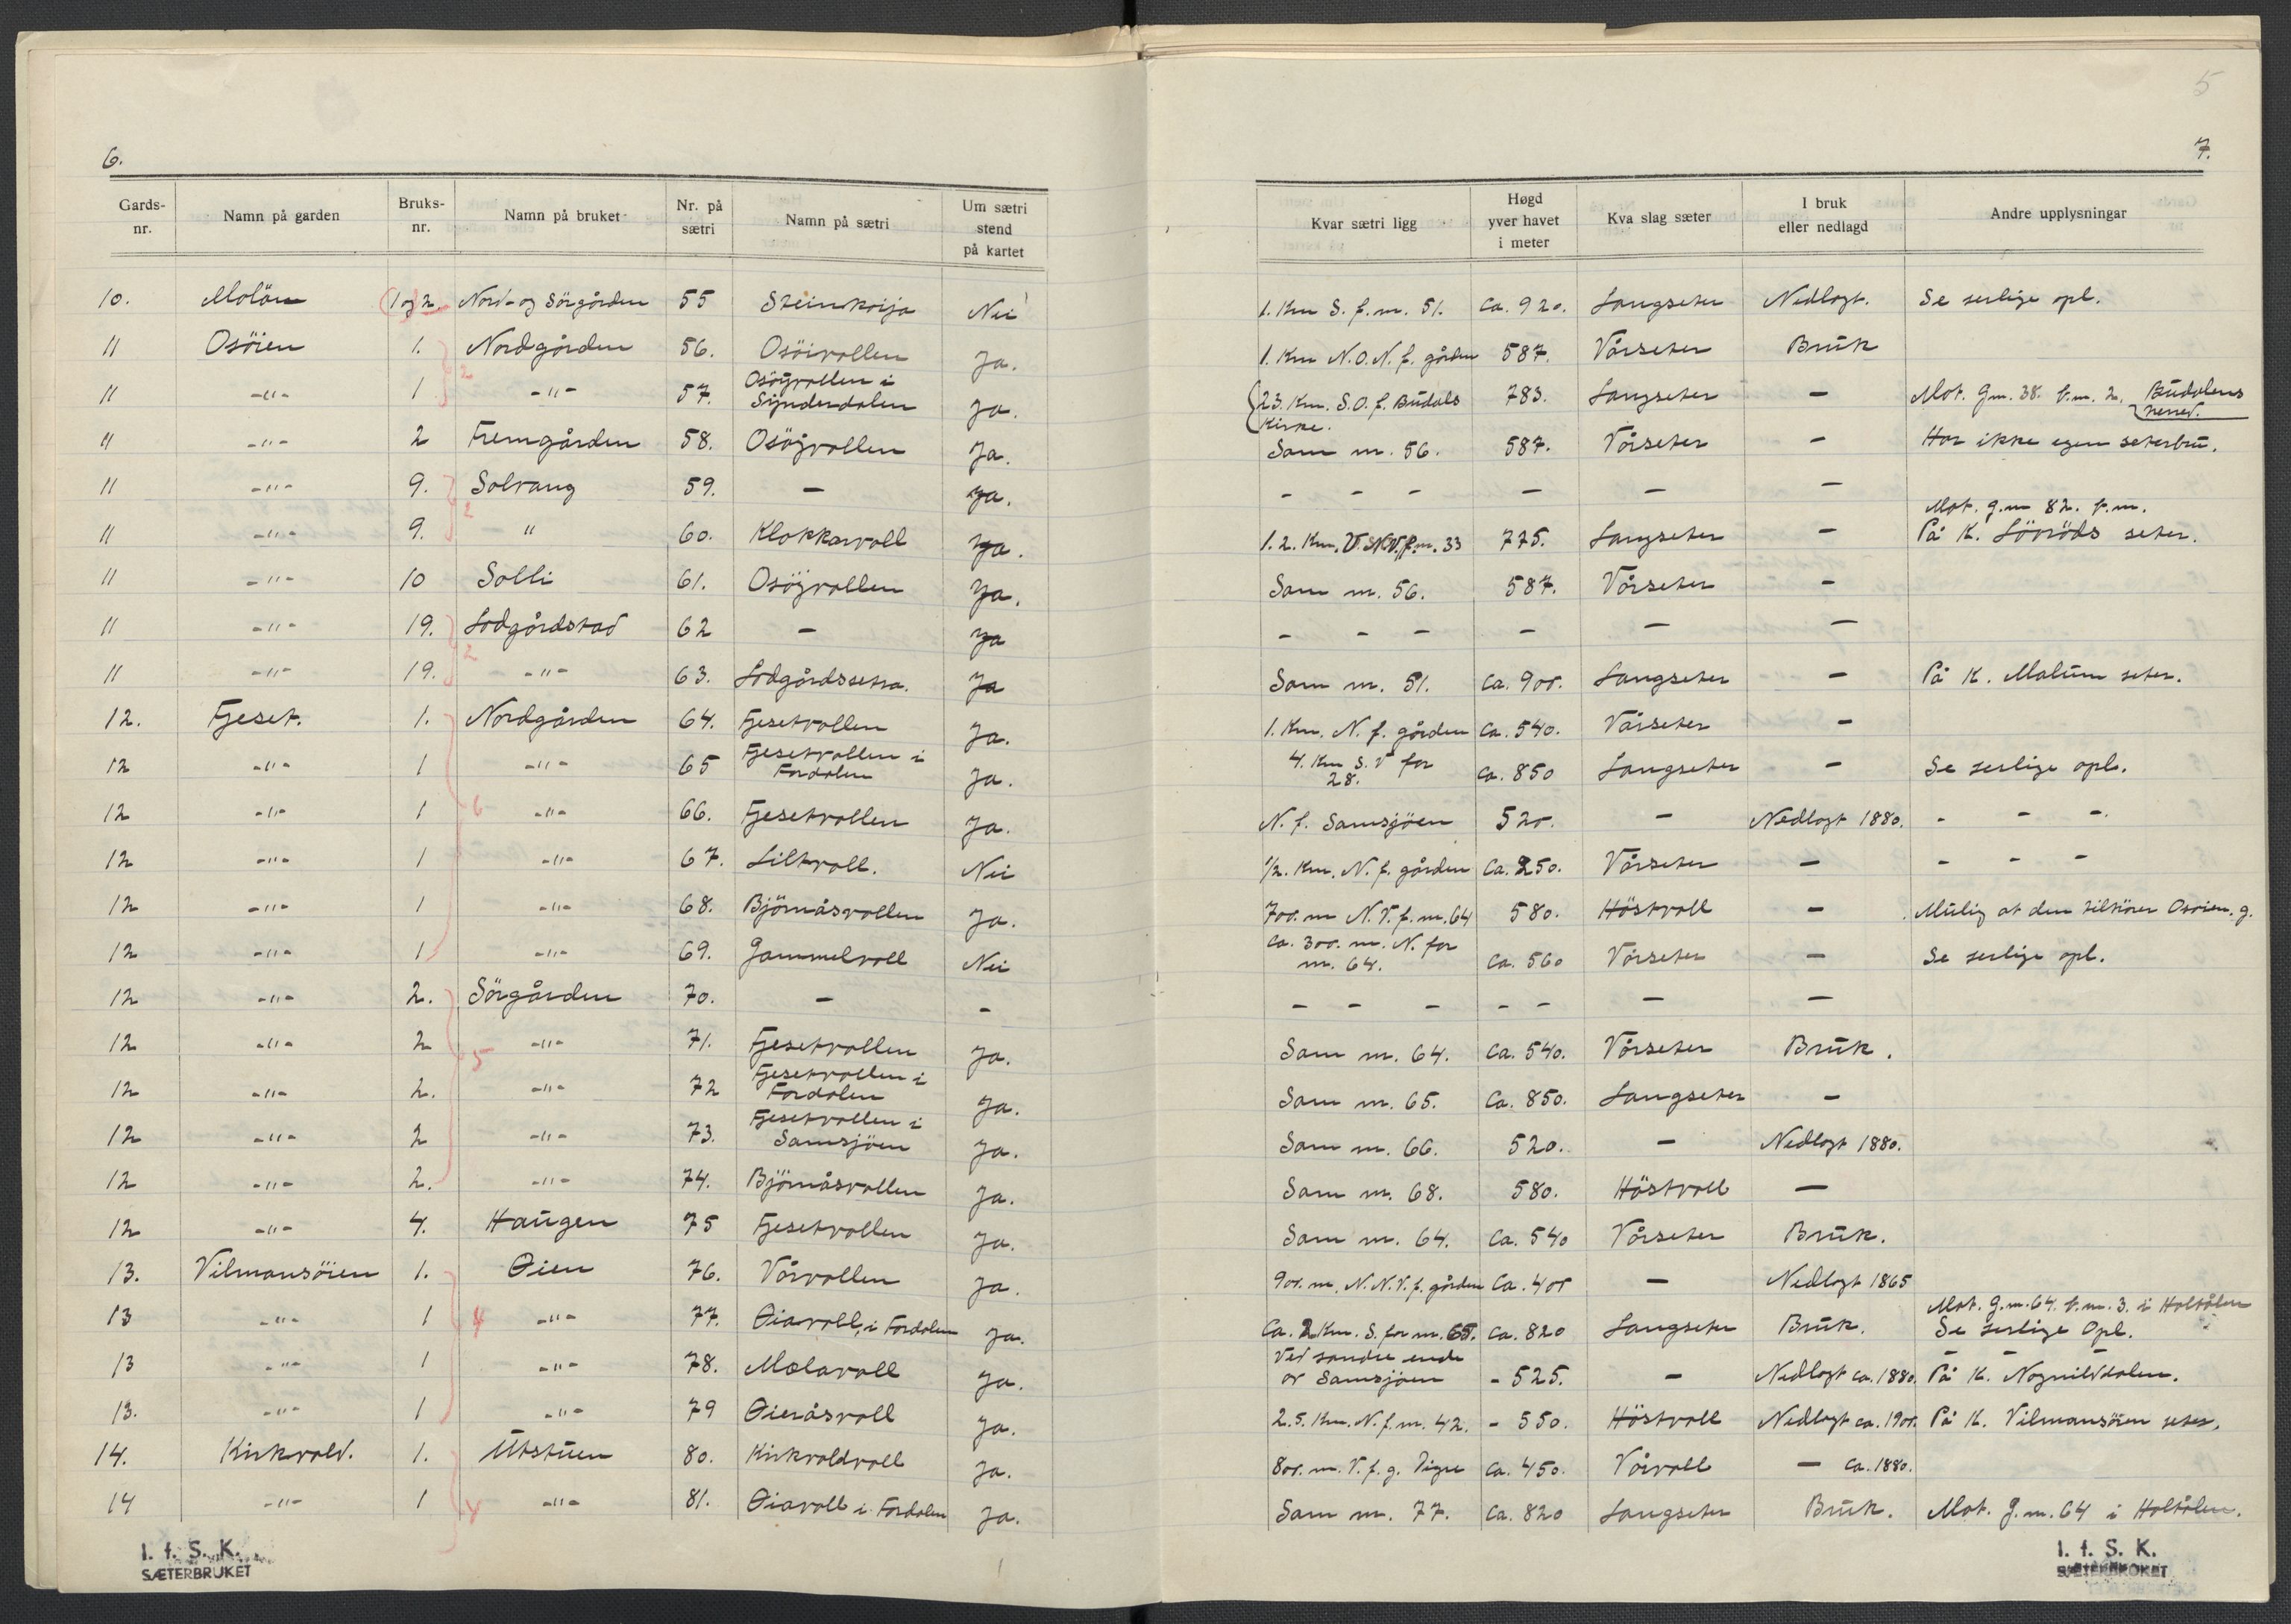 5
6.
7.
Gards-nr. Namn på garden Bruks-nr. Namn på bruket Nr. på sætri Namn på sætri Um sætri stend på kartet Kvar sætri ligg Høgd yver havet i meter Kva slag sæter I bruk eller nedlagd Andre upplysningar
10. Moløen 1 og 2 Nord- og Sörgården 55 Steinkoija Nei 1. Km S. f. nr. 51. Ca. 920. Langseter Nedlagt. Se serlige opl.
11 Osöien 1. Nordgården 56. Osöivollen Ja. 1. Km N.O.N. f. gården 587. Vårseter Bruk
11 -"- 1 -"- 57. Osöyvollen i Synderdalen Ja. 23. Km. S.O. f. Budals Kirke. 783. Langseter - Mot. G.nr. 38. b.nr. 2. Budalens herred.
11 -"- 2 Fremgården 58. Osöyvollen Ja. Som nr. 56. 587. Vårseter - Har ikke egen seterbu.
11 -"- 9. Solvang 59. - Ja. - - - - - -
11 -"- 9. " 60. Klokkarvoll Ja. 1.2. Km. V.S.V. f. nr. 33 775. Langseter - Mot. g.nr 82. b.nr. På K. Lövröds seter.
11 -"- 10 Solli 61. Osöyvollen Ja. Som nr. 56. 587. Vårseter -
11 -"- 19. Lodgårdstad 62 - Ja - - - - - -
11 -"- 19. -"- 63. Lodgårdssetra. Ja Som nr. 51. Ca. 900. Langseter - På K. Molum seter.
12. Fjeset. 1. Nordgården 64. Fjesetvollen Ja. 1. Km. N. f. gården Ca. 540. Vårseter -
12 -"- 1 -"- 65 Fjesetvollen i Fordalen Ja. 4. Km S.V for 28. Ca. 850 Langseter - Se serlige opl.
12 -"- 1 -"- 66. Fjesetvollen Ja. N. f. Samsjöen 520. - Nedlagt 1880. - - -
12 -"- 1 -"- 67. Liltvoll. Nei 1/2. Km. N. f. gården Ca. 250. Vårseter - - - -
12 -"- 1 -"- 68. Björnåsvollen Ja. 700. m N.V. f. nr. 64 580. Höstvoll - Mulig at den tilhörer Osoien. g.
12 -"- 1 -"- 69. Gammelvoll Nei Ca. 300. m. N. for nr. 64. Ca. 560 Vårseter - Se serlige opl.
12 -"- 2. Sörgården 70. - - - - - - - - -
12 -"- 2 -"- 71. Fjesetvollen Ja. Som nr. 64. Ca. 540. Vårseter Bruk.
12 -"- 2. -"- 72 Fjesetvollen i Fordalen Ja. Som nr. 65. Ca. 850. Langseter -
12 -"- 2 -"- 73. Fjesetvollen i Samsjöen Ja. Som nr. 66. 520. - Nedlagt 1880.
12 -"- 2. -"- 74. Björnåsvollen Ja. Som nr. 68. 580. Höstvoll -
12 -"- 4. Haugen 75 Fjesetvollen Ja. Som nr. 64. Ca. 540 Vårseter Bruk.
13. Vilmansöien 1. Øien 76. Vårvollen Ja. 900. m. N.N.V. f. gården Ca. 400 - Nedlagt 1865
13 -"- 1 -"- 77. Øiavoll, i Fordalen Ja. Ca. 2 Km. S. for nr. 65. Ca. 820 Langseter Bruk. Mot. G.nr. 64. b.nr. 3. i Holtålen Se serlige Opl.
13 -"- 1 -"- 78. Molavoll Ja. Ved söndre ende av Samsjöen - 525. - Nedlagt ca. 1880. På K. Nognilddalen.
13. -"- 1 -"- 79 Øieråsvoll Ja. 2.5. Km. N. f. nr. 42. - 550. Höstvoll Nedlagt ca. 1900. På K. Vilmansöien seter.
14. Kirkvold. 1. Utstuen 80. Kirkvoldvoll Ja. 800. m. V. f. g. Digre Ca. 450. Vårvoll - Ca. 1880.
14 -"- 1 -"- 81. Øiavoll i Fordalen Ja. Som nr. 77. Ca. 820 Langseter Bruk. Mot. G.nr. 64 i Holtålen.
2
2
2
6
5
4
4
I. f. S. K.
SÆTERBRUKET
I. f. S. K.
SÆTERBRUKET